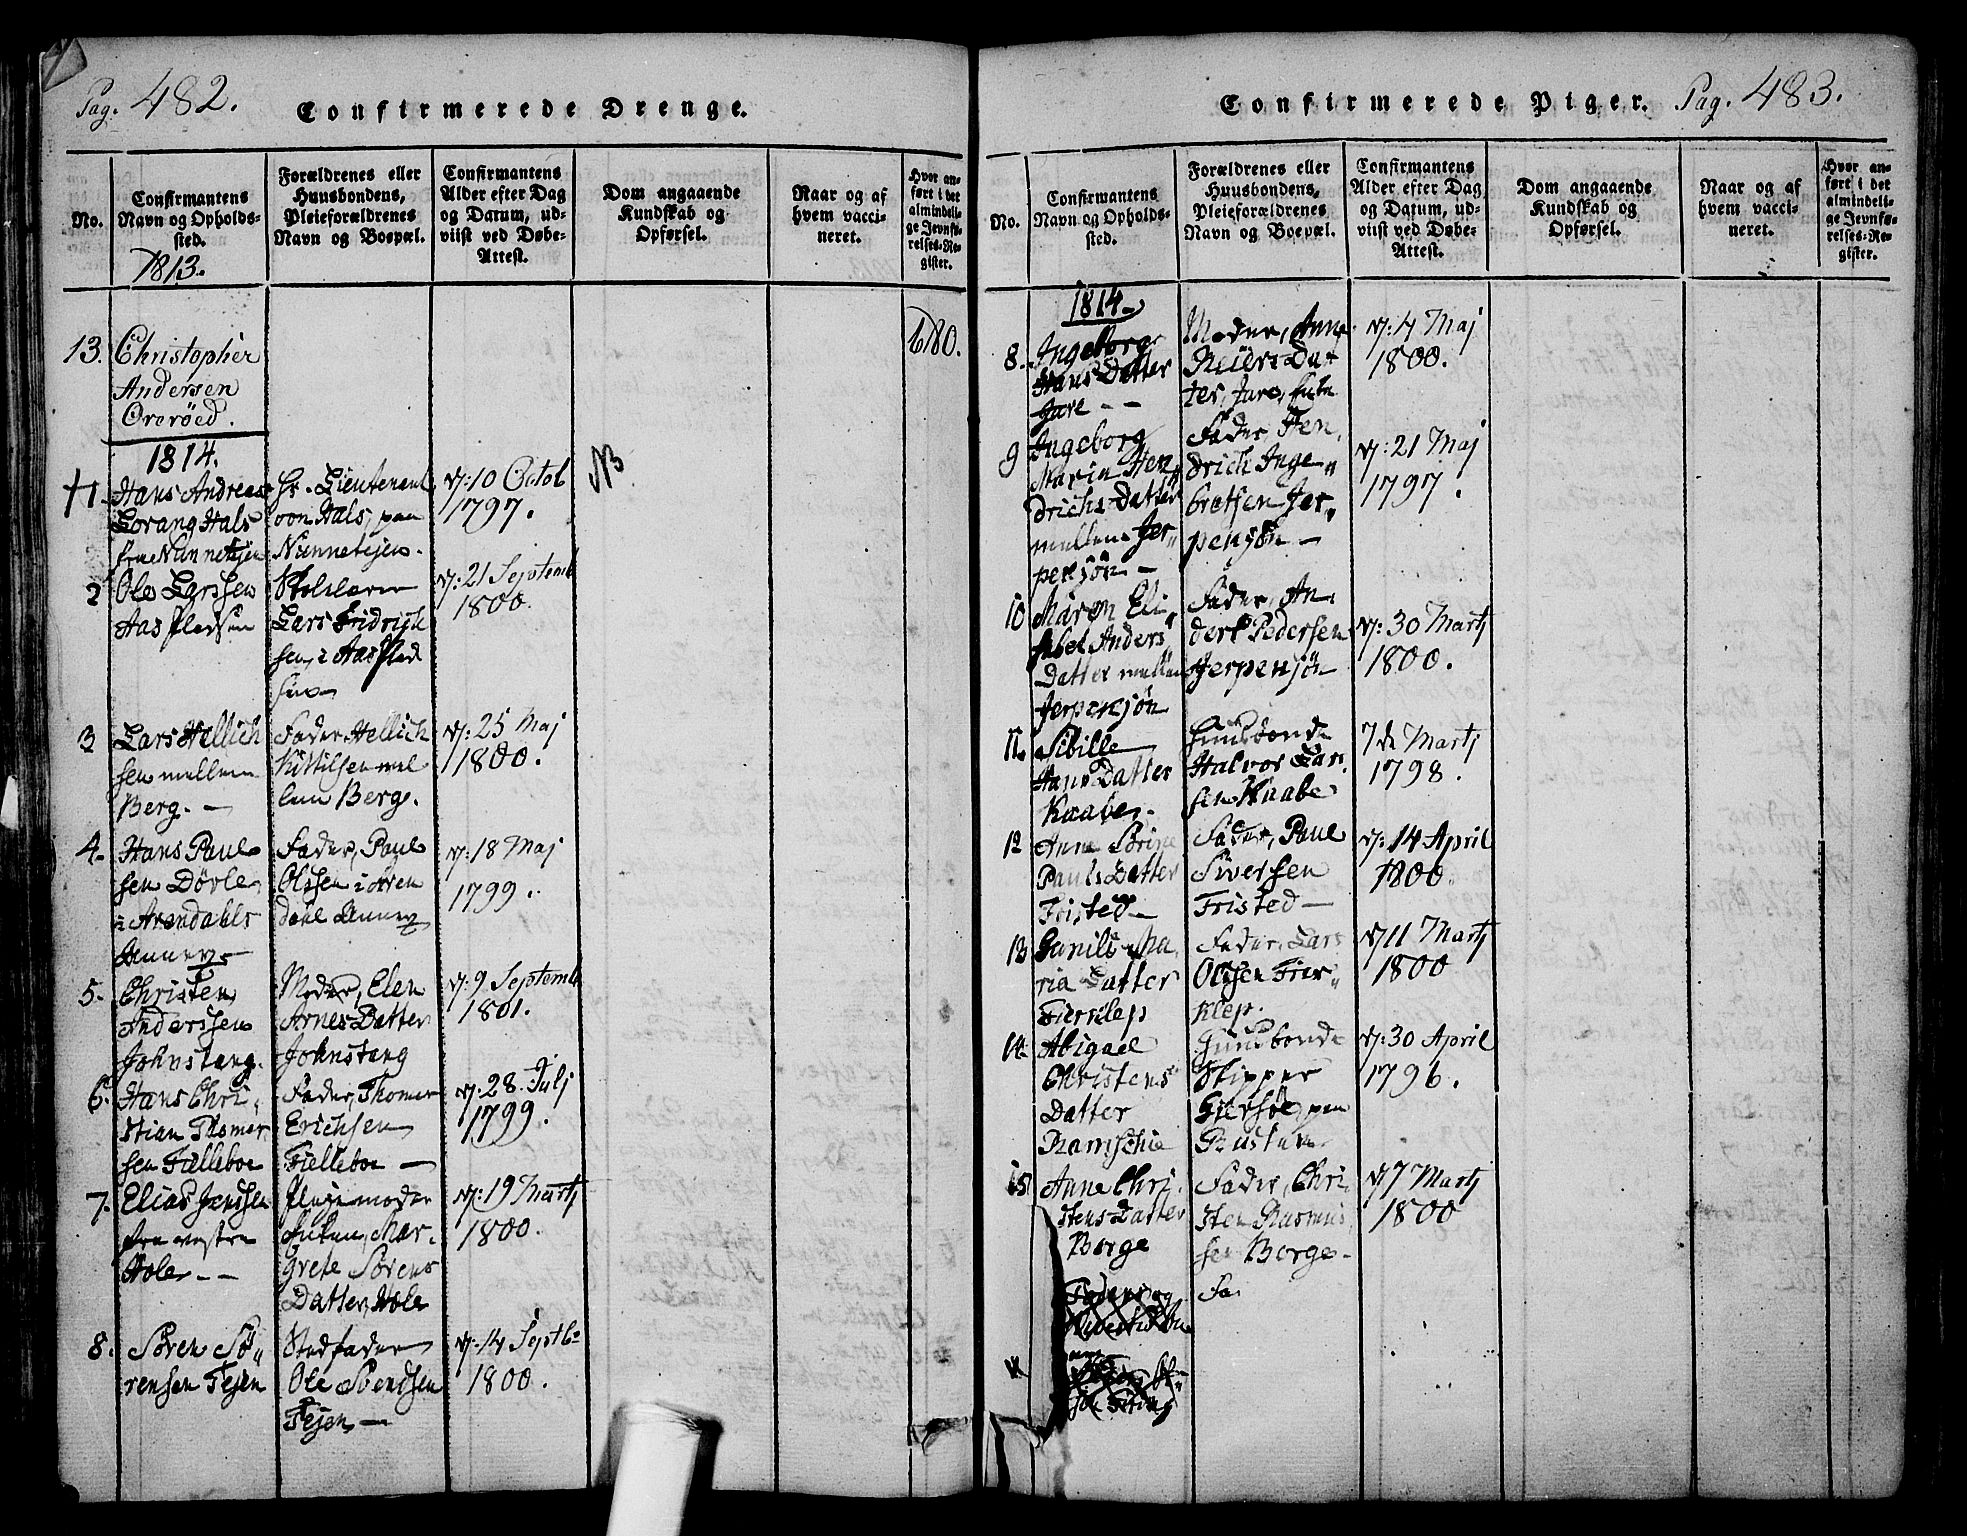 Pag. 482.
Confirmerede Drenge.
No.
Confirmantens
Navn og Opholds-
sted.
Forældrenes eller
Huusbondens,
Pleieforældrenes
Navn og Boepæl.
Confirmantens
Alder efter Dag
og Datum, ud-
viist ved Døbe-
Attest.
Dom angaaende
Kundskab og
Opførsel.
Naar og af
hvem vacci-
neret.
Hvor an-
ført i det
almindeli-
ge Jevnfø-
relses-Re-
gister.
1813.
13. Christopher
Andersen
Oreröed.
680.
1814.
1. Hans Andreas
Lorang Hals
fra Nunnetejen
Hr. Lieutenant
von Hals, paa
Nunnetejen.
7: 10 Octob
1797.
NB
2 Ole Larssen
Aas Pladsen
Lars Fridrich
sen, i Aas Plad
sen
7: 21 Septemb
1800.
3 Lars Hellich
sen mellem
Berg. —
Fader Hellich
Kittilsen mel
lem Berg.
7: 25 Maj
1800.
4. Hans Paul
sen Dövle
i Arendahls
Annex
Fader, Paul
Olssen i Aren
dahl Annex
7: 18 Maj
1799.
5. Christen
Anderssen
Johnstang.
Moder, Elen
Arnes Datter
Johnstang
7: 9 Septemb
1801.
6. Hans Chri
stian Thomes
sen Fielleboe
Fader, Thomes
Erichsen
Fielleboe —
7: 28. Julj
1799.
7. Elias Jenssen
fra vestre
Hole. — —
Plejemoder
Enken, Mar-
grete Sörens
Datter, Hole
7: 19 Martj
1800.
8. Sören Sö
rensen Tejen
Stedfader
Ole Svendsen
Tejen —
7: 14 Septb
1800.
Confirmerede Piger.
Pag. 483.
No.
Confirmantens
Navn og Opholds-
sted.
Forældrenes eller
Huusbondens,
Pleieforældrenes
Navn og Boepæl.
Confirmantens
Alder efter Dag
og Datum, ud-
viist ved Døbe-
Attest.
Dom angaaende
Kundskab og
Opførsel.
Naar og af
hvem vacci-
neret.
Hvor an-
ført i det
almindeli-
ge Jevnfø-
relses-Re-
gister.
1814
8. Ingeborg
Hans Datter
Jare — —
Moder, Anne
Reiers Dat
ter, Jare, Enke
7: 4 Maj
1800.
9 Ingeborg
Maria Hen
drichs Datter
mellem Jer
pensjön —
Fader, Hen
drich Inge
bretsen Jer
pensjön —
7: 21 Maj
1797.
10 Maren Eli
sabet Anders
Datter mellem
Jerpensjön
Fader, An
ders Pedersen
Jerpensjön
7: 30 Martj
1800.
11 Sibille
Hans Datter
Kaabe.
Huusbonde
Halvor Lar
sen Kaabe
7 de Martj
1798.
12 Anne Sörine
Pauls Datter
Fristed —
Fader, Paul
Siversen
Fristed —
7: 14 April
1800.
13 Gunild Ma
ria Datter
Fierslep
Fader, Lars
Olssen Fier
klep.
7 11 Martj
1800
14. Abigael
Christens
Datter
Ramschie
Huusbonde
Skipper
Giersöe, paa
Rustan
7: 30 April
1796.
15 Anne Chri
stens Datter
Borge
Fader, Chri
sten Rasmus
sen Borge.
7 7 Martj
1800
Fa